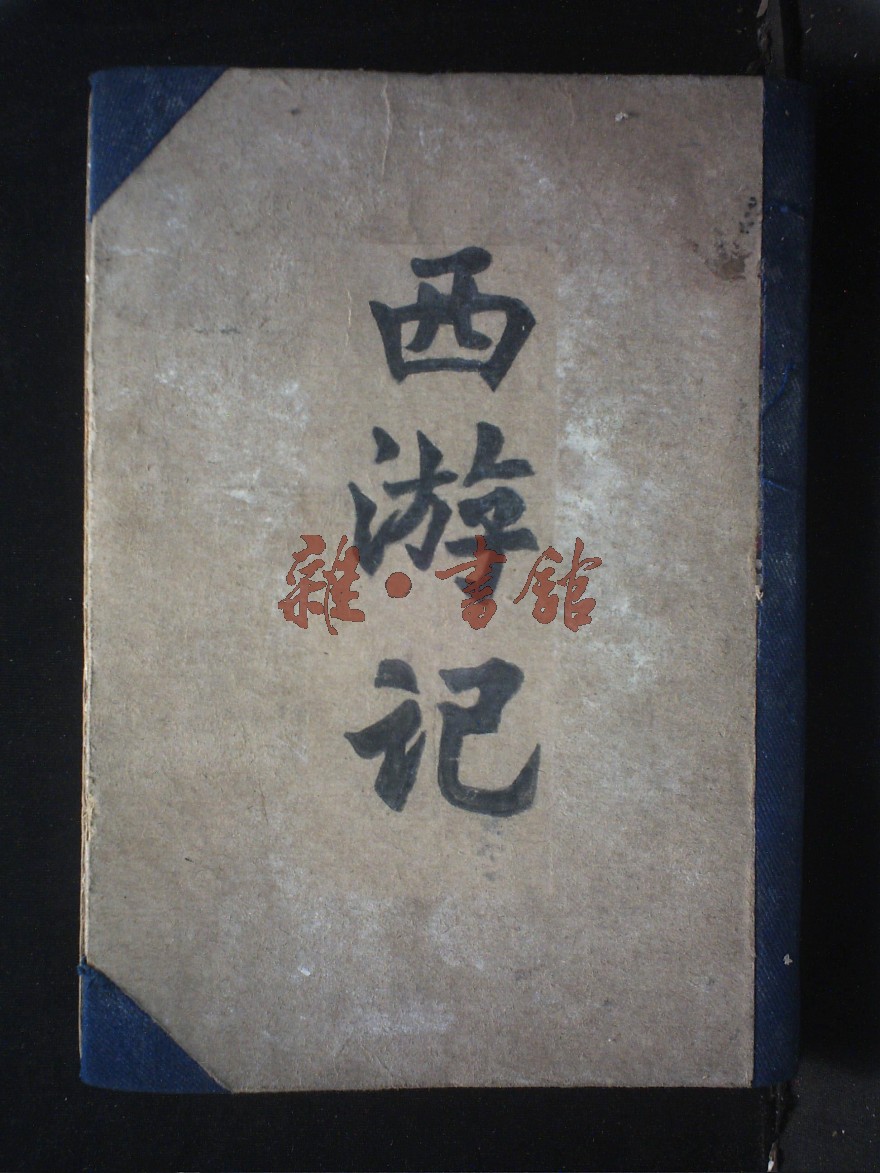 西游记
雜·書館